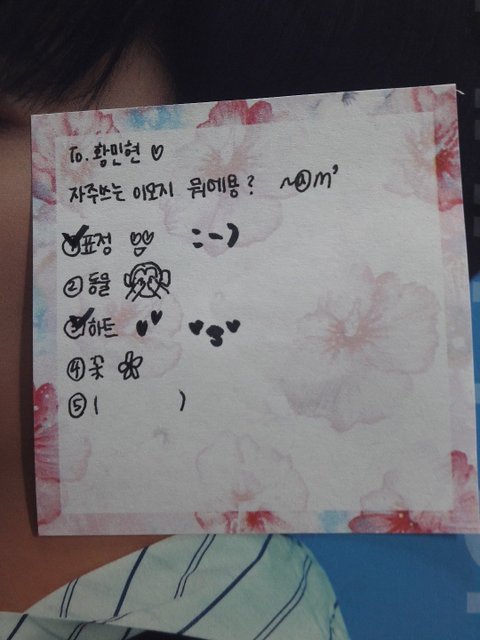 To. 황민현 ♡
자주쓰는 이모지 뭐에용?
① 표정 :-)
② 동물
③ 하트
④ 꽃
⑤ ( )